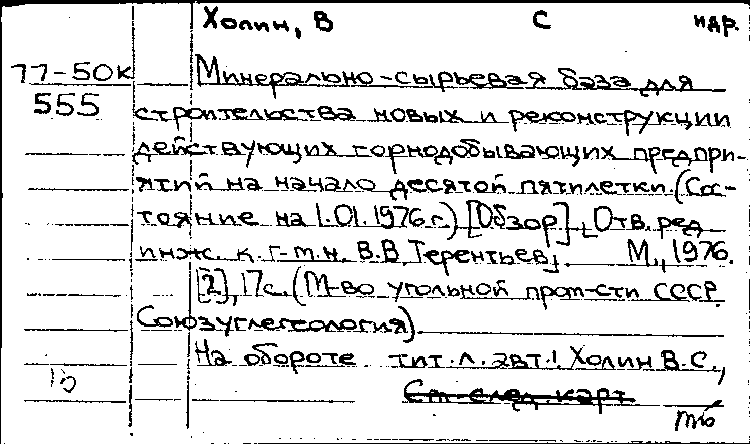 Холин, В С идр.
77-50к Минерально-сырьевая база для
555 строительства новых и реконструкции
действующих горнодобывающих предпри-
ятий на начало десятой пятилетки. (Сос-
тояние на 1.01.1976г.) [Обзор]. [Отв. ред.
инж. к. г-м. н. В.В. Терентьев]. М., 1976.
[2], 17с. (М-во угольной пром-сти СССР.
Союзуглегеология).
На обороте тит. л. авт.: Холин В.С.,
См след. карт.